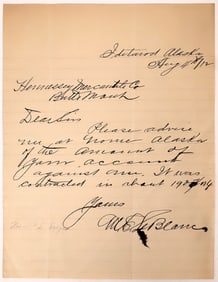 Iditarod Alaska
Aug 4th/12
Hennessy Mercantile Co
Butte Mont
Dear Sirs
Please advise
me at Nome Alaska
of the amount of
your account
against me. It was
contracted in about
Yours